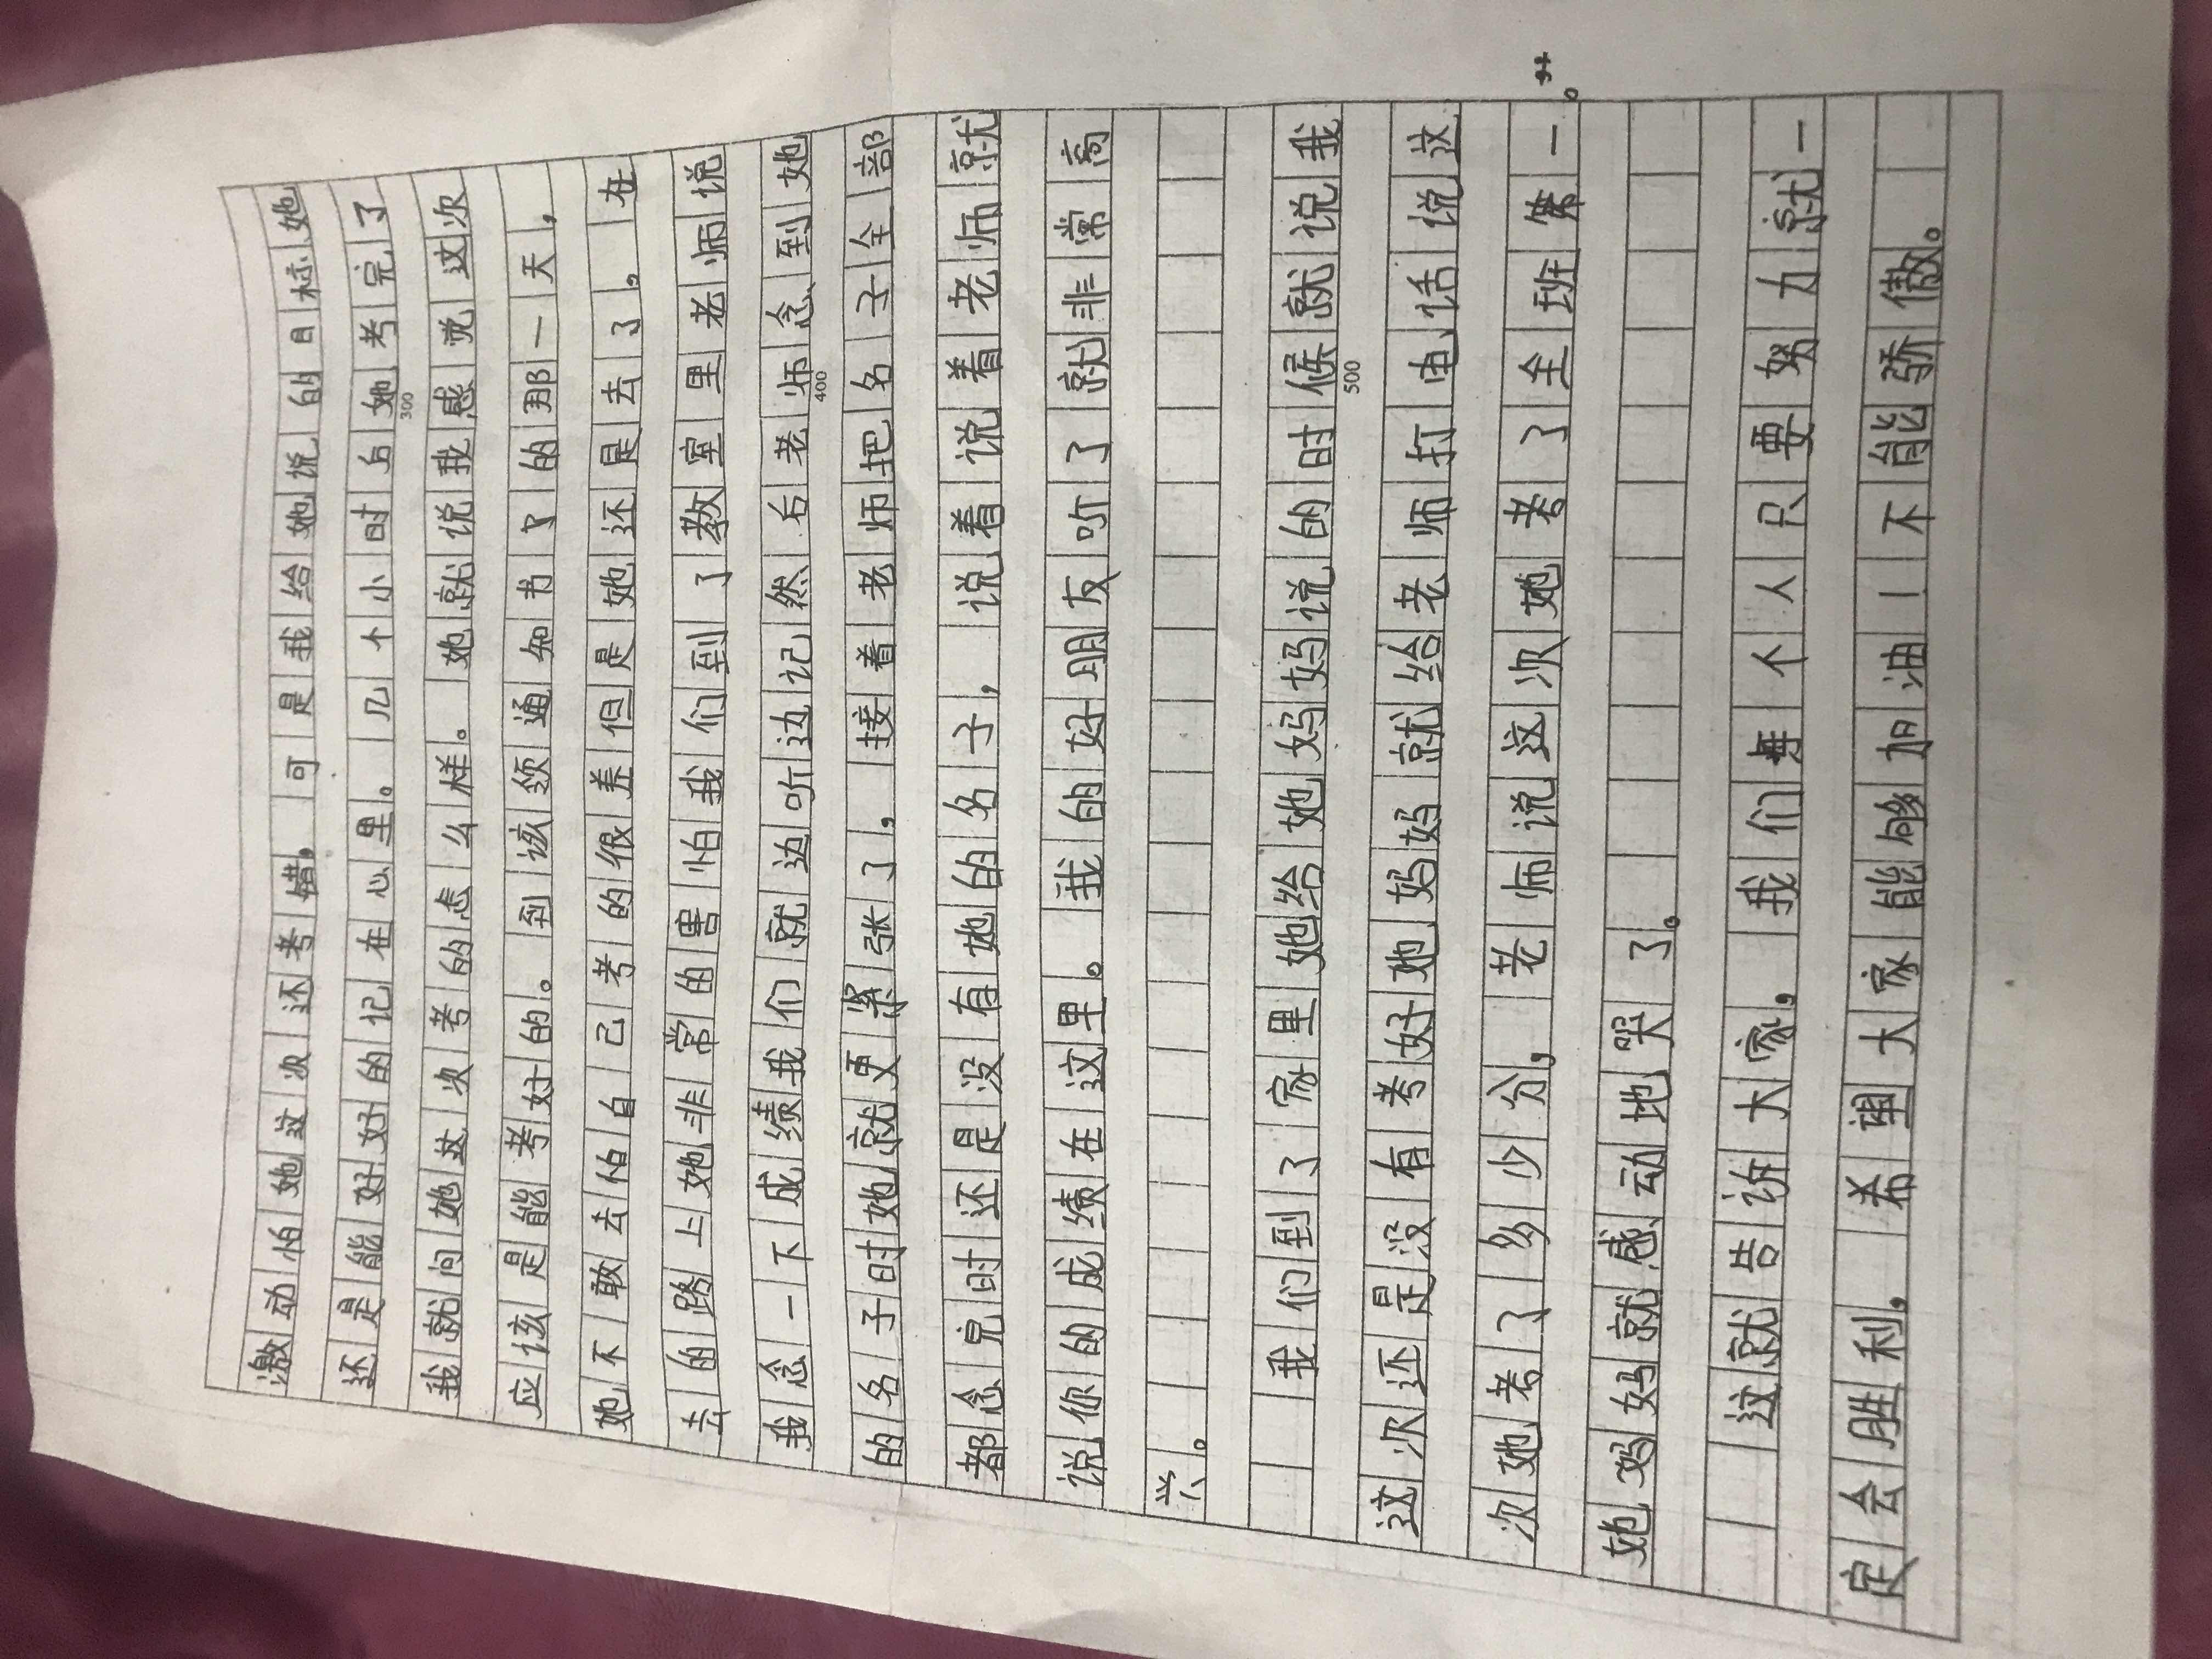 激动怕她这次还考错。可是我给她说的目标她
还是能好好的记在心里。几个小时后她考完了
300
我就问她这次考的怎么样。她就说我感觉这次
应该是能考好的。到该领通知书了的那一天，
她不敢去怕自己考的很差但是她还是去了。在
去的路上她非常的害怕我们到了教室里老师说
我念一下成绩我们就边听边记然后老师念到她
400
的名子时她就更紧张了，接着老师把名子全部
都念完时还是没有她的名子，说着说着老师就
说你的成绩在这里。我的好朋友听了就非常高
兴。
我们到了家里她给她妈妈说的时候就说我
500
这次还是没有考好她妈妈就给老师打电话说这
次她考了多少分，老师说这次她考了全班第一。
她妈妈就感动地哭了。
这就告诉大家，我们每个人只要努力就一
定会胜利，希望大家能够加油！不能骄傲。